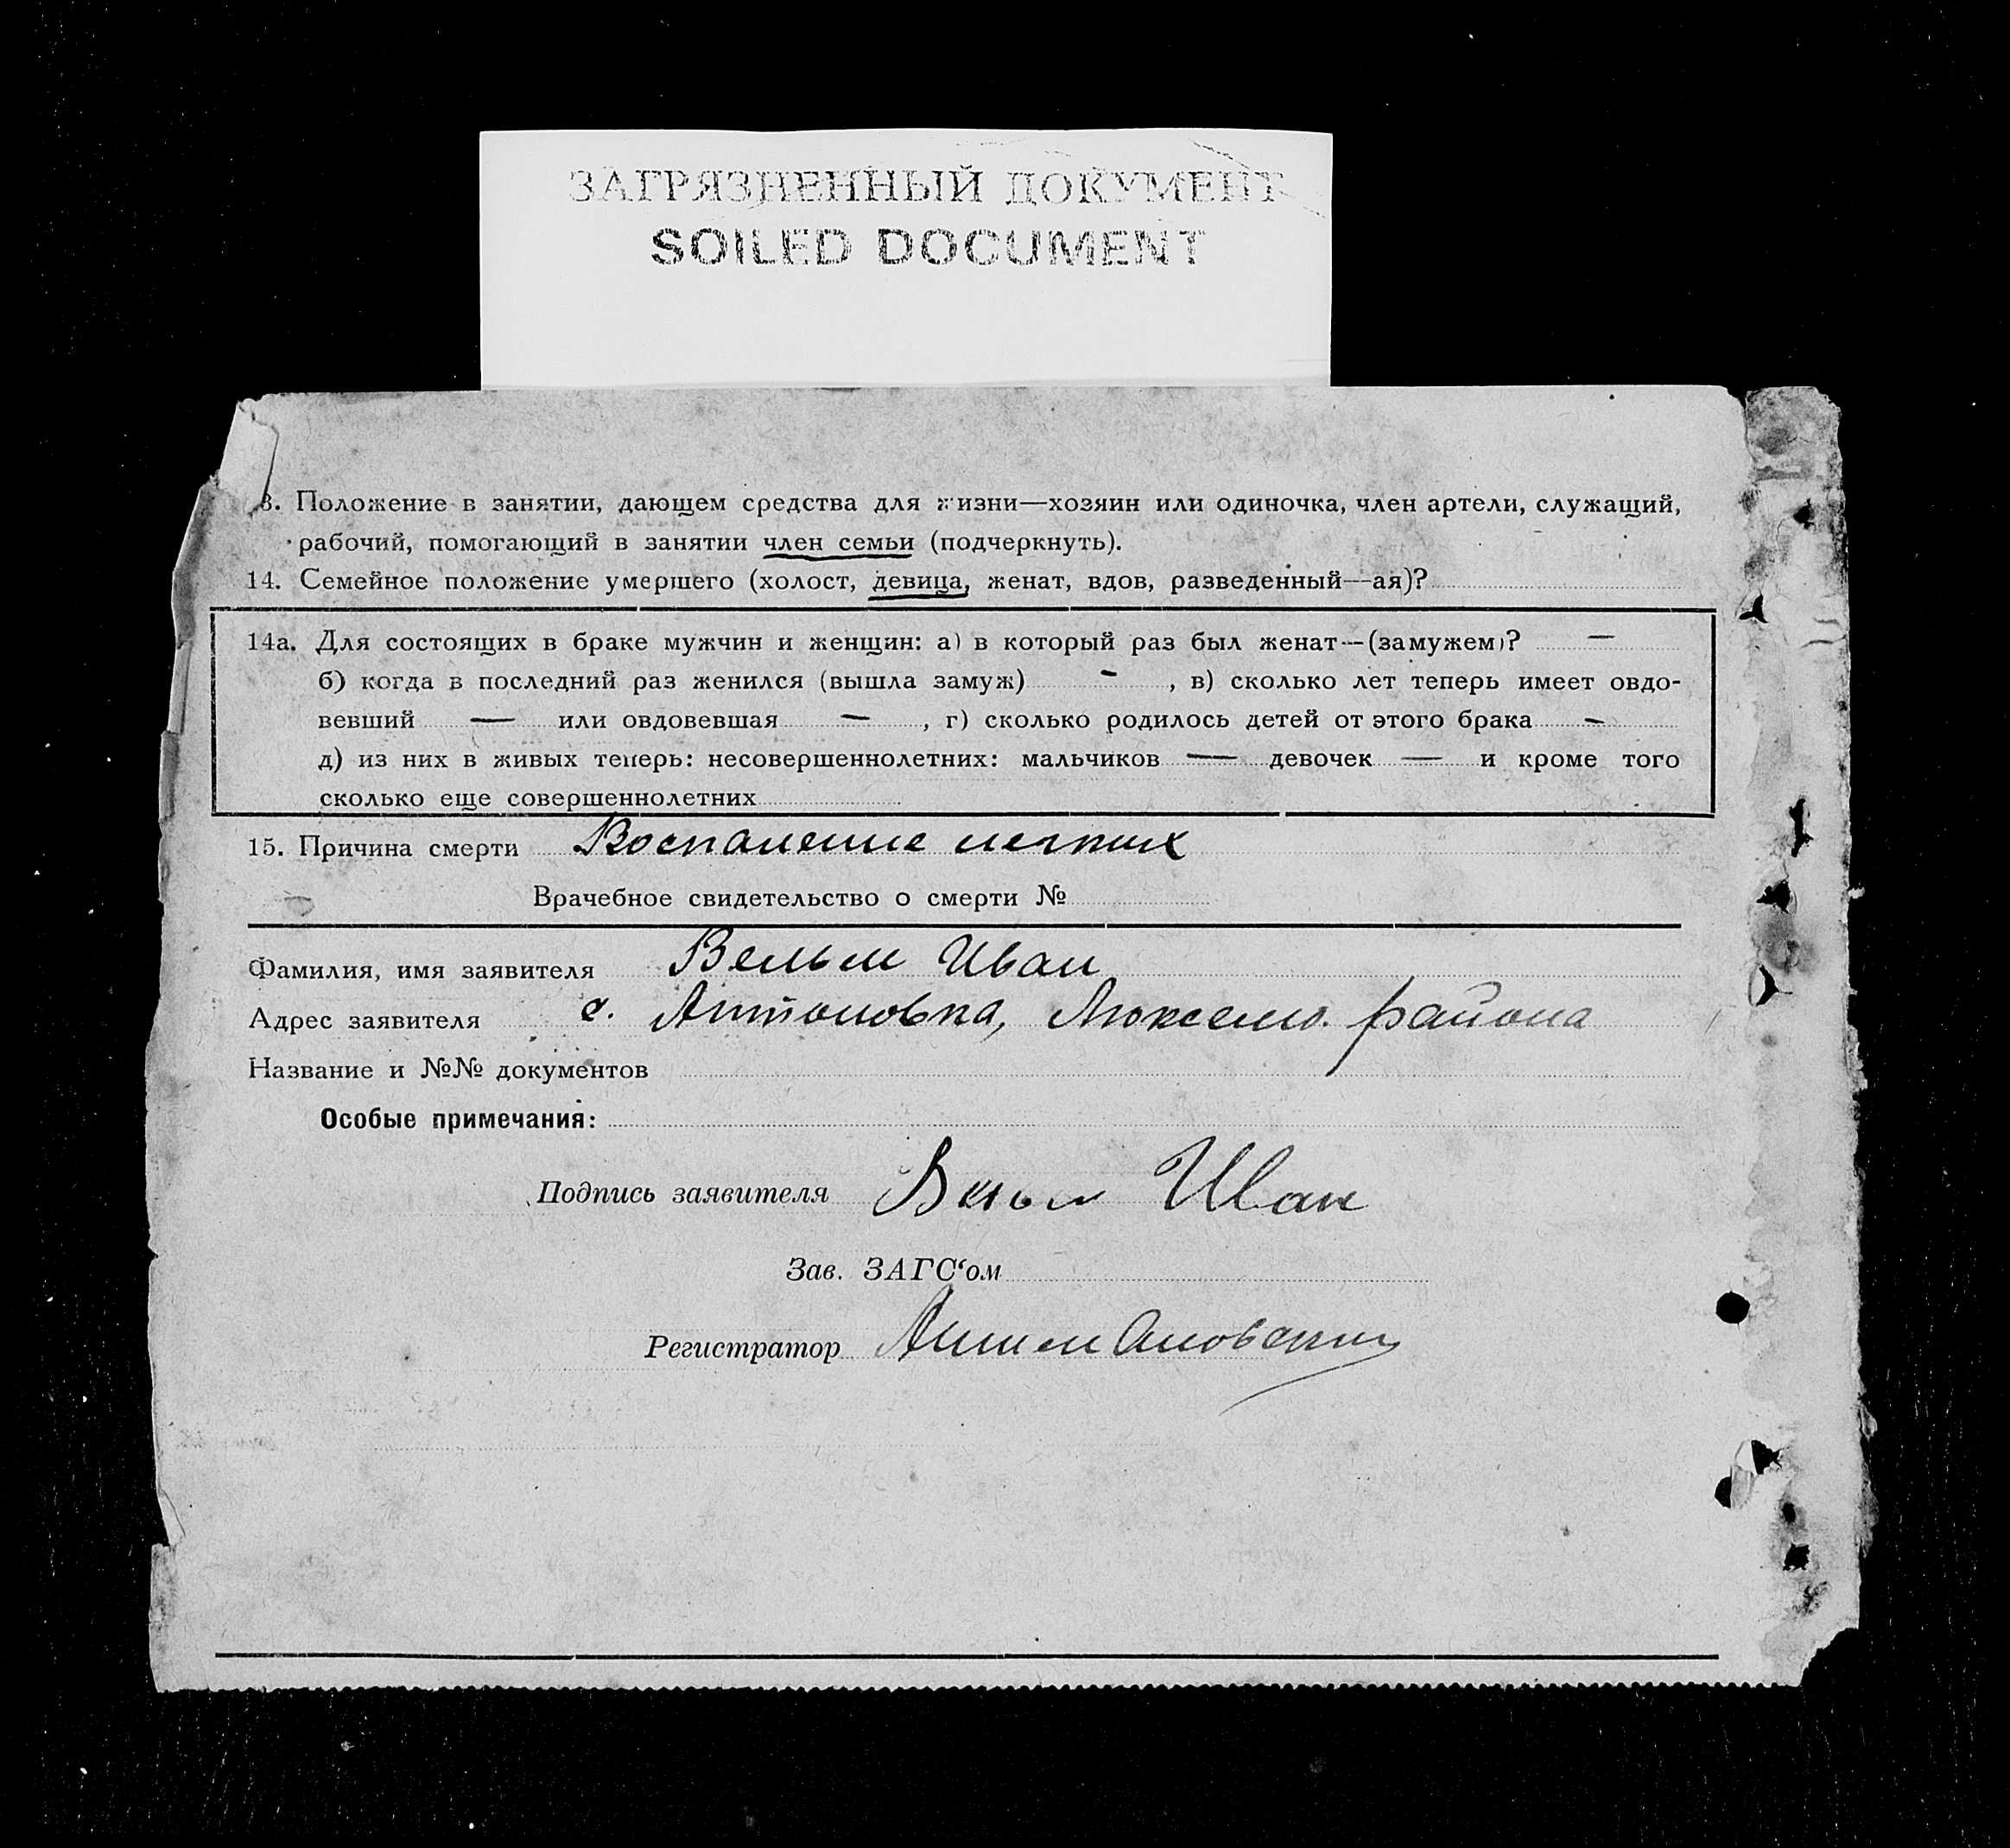 ЗАГРЯЗНЕННЫЙ ДОКУМЕНТ
SOILED DOCUMENT
3. Положение в занятии, дающем средства для жизни—хозяин или одиночка, член артели, служащий,
рабочий, помогающий в занятии член семьи (подчеркнуть).
14. Семейное положение умершего (холост, девица, женат, вдов, разведенный—ая)?
14а. Для состоящих в браке мужчин и женщин: а) в который раз был женат—(замужем)? —
б) когда в последний раз женился (вышла замуж) - , в) сколько лет теперь имеет овдо-
вевший — или овдовевшая — , г) сколько родилось детей от этого брака -
д) из них в живых теперь: несовершеннолетних: мальчиков — девочек — и кроме того
сколько еще совершеннолетних
15. Причина смерти Воспаление легких
Врачебное свидетельство о смерти №
Фамилия, имя заявителя Вельм Иван
Адрес заявителя с. Антоновка, Люксемб. района
Название и №№ документов
Особые примечания:
Подпись заявителя Вельм Иван
Зав. ЗАГС‘ом
Регистратор